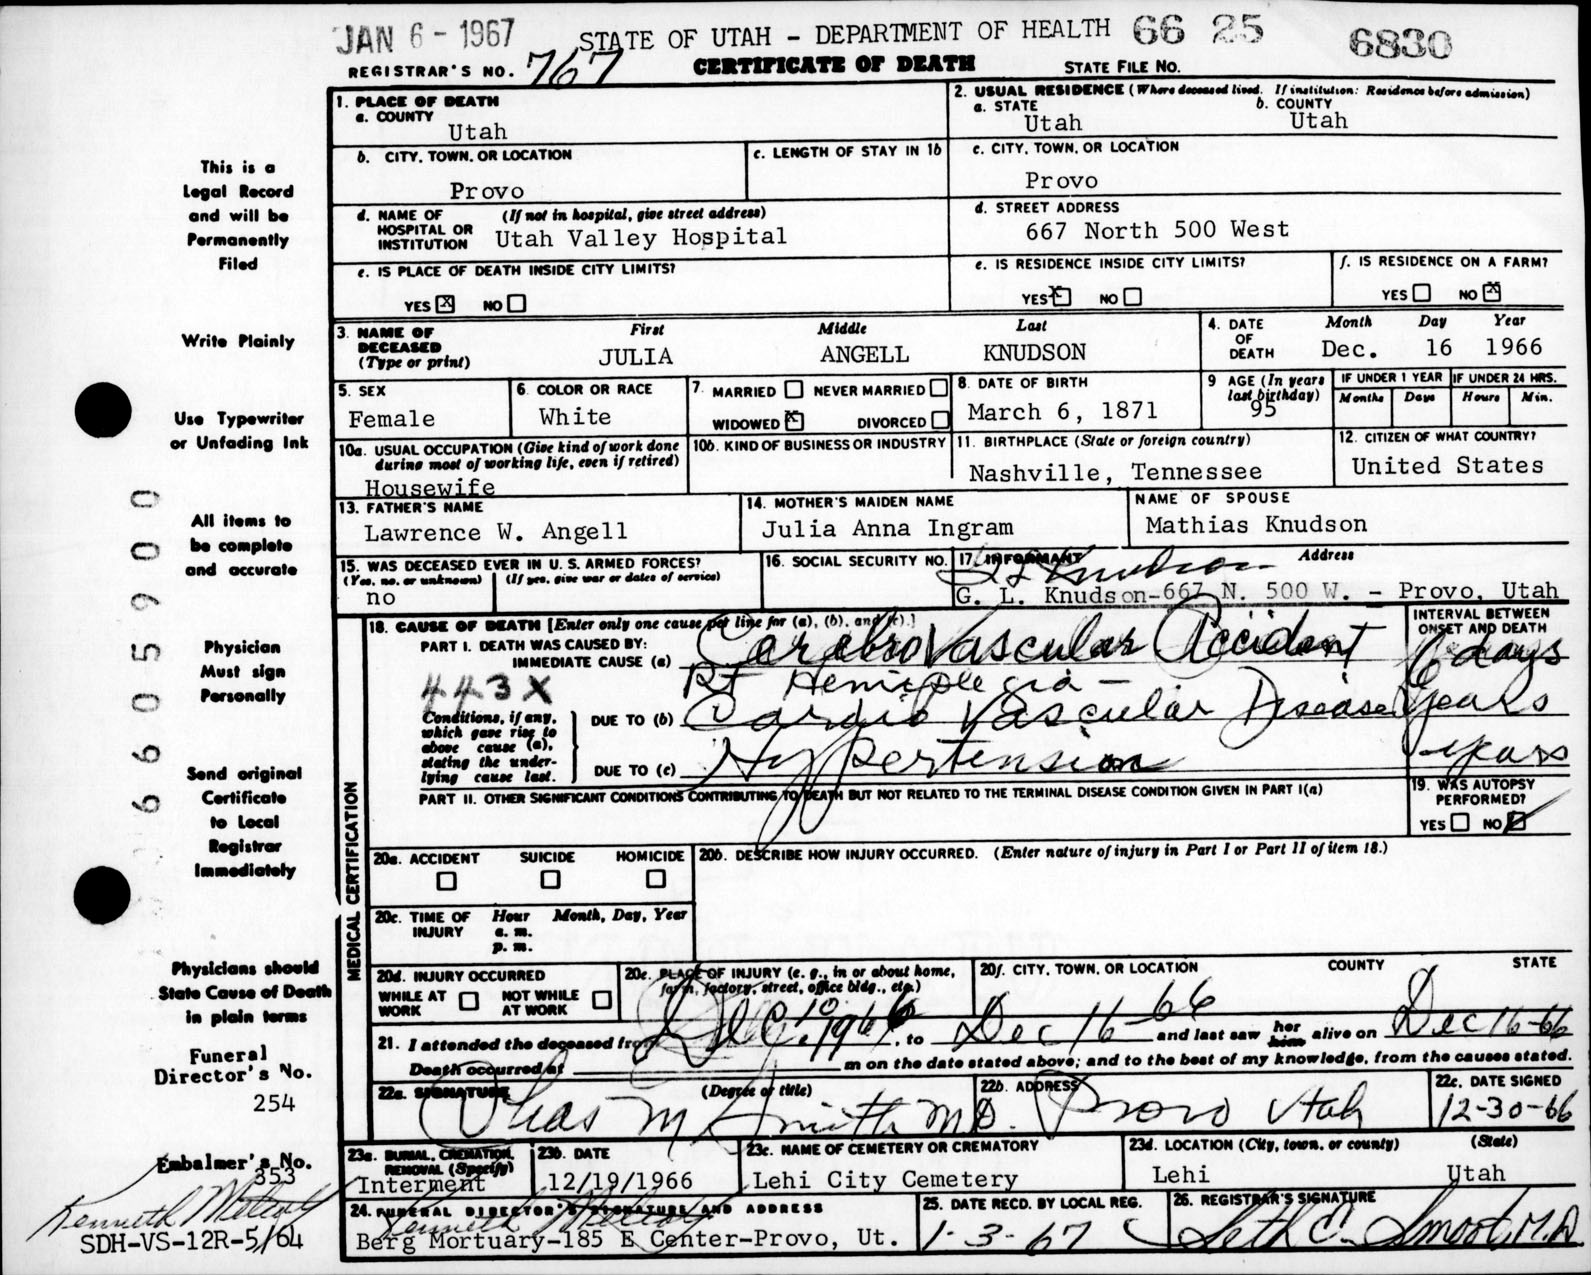 JAN 6 - 1967
STATE OF UTAH - DEPARTMENT OF HEALTH 66 25 6830
REGISTRAR'S NO. 767 CERTIFICATE OF DEATH STATE FILE NO.
1. PLACE OF DEATH
a. COUNTY
Utah
2. USUAL RESIDENCE (Where deceased lived. If institution: Residence before admission)
a. STATE b. COUNTY
Utah Utah
b. CITY, TOWN, OR LOCATION
Provo
c. LENGTH OF STAY IN 1b
c. CITY, TOWN, OR LOCATION
Provo
d. NAME OF HOSPITAL OR INSTITUTION (If not in hospital, give street address)
Utah Valley Hospital
d. STREET ADDRESS
667 North 500 West
e. IS PLACE OF DEATH INSIDE CITY LIMITS?
YES X NO
e. IS RESIDENCE INSIDE CITY LIMITS?
YES X NO
f. IS RESIDENCE ON A FARM?
YES NO X
3. NAME OF DECEASED (Type or print) First Middle Last
JULIA ANGELL KNUDSON
4. DATE OF DEATH Month Day Year
Dec. 16 1966
5. SEX
Female
6. COLOR OR RACE
White
7. MARRIED NEVER MARRIED
WIDOWED X DIVORCED
8. DATE OF BIRTH
March 6, 1871
9 AGE (In years last birthday)
95
IF UNDER 1 YEAR IF UNDER 24 HRS.
Months Days Hours Min.
10a. USUAL OCCUPATION (Give kind of work done during most of working life, even if retired)
Housewife
10b. KIND OF BUSINESS OR INDUSTRY
11. BIRTHPLACE (State or foreign country)
Nashville, Tennessee
12. CITIZEN OF WHAT COUNTRY?
United States
13. FATHER'S NAME
Lawrence W. Angell
14. MOTHER'S MAIDEN NAME
Julia Anna Ingram
NAME OF SPOUSE
Mathias Knudson
15. WAS DECEASED EVER IN U.S. ARMED FORCES?
(Yes, no, or unknown) (If yes, give war or dates of service)
no
16. SOCIAL SECURITY NO.
17. INFORMANT Address
G L Knudson
G. L. Knudson-667 N. 500 W. - Provo, Utah
18. CAUSE OF DEATH [Enter only one cause per line for (a), (b), and (c).]
INTERVAL BETWEEN ONSET AND DEATH
PART I. DEATH WAS CAUSED BY:
IMMEDIATE CAUSE (a) Cerebro Vascular Accident 6 days
443X
Rt Hemiplegia -
Conditions, if any, which gave rise to above cause (a), stating the underlying cause last.
DUE TO (b) Cardio Vascular Disease years
DUE TO (c) Hypertension years
PART II. OTHER SIGNIFICANT CONDITIONS CONTRIBUTING TO DEATH BUT NOT RELATED TO THE TERMINAL DISEASE CONDITION GIVEN IN PART I(a)
19. WAS AUTOPSY PERFORMED?
YES NO
20a. ACCIDENT SUICIDE HOMICIDE
20b. DESCRIBE HOW INJURY OCCURRED. (Enter nature of injury in Part I or Part II of item 18.)
20c. TIME OF INJURY Hour Month, Day, Year
a. m.
p. m.
20d. INJURY OCCURRED
WHILE AT WORK NOT WHILE AT WORK
20e. PLACE OF INJURY (e. g., in or about home, farm, factory, street, office bldg., etc.)
20f. CITY, TOWN, OR LOCATION COUNTY STATE
21. I attended the deceased from Dec. 10 1966, to Dec 16-66 and last saw her him alive on Dec 16-66
Death occurred at m on the date stated above; and to the best of my knowledge, from the causes stated.
22a. SIGNATURE (Degree or title)
Chas M Smith M.D.
22b. ADDRESS
Provo Utah
22c. DATE SIGNED
12-30-66
23a. BURIAL, CREMATION, REMOVAL (Specify)
Interment
23b. DATE
12/19/1966
23c. NAME OF CEMETERY OR CREMATORY
Lehi City Cemetery
23d. LOCATION (City, town, or county) (State)
Lehi Utah
24. FUNERAL DIRECTOR'S SIGNATURE AND ADDRESS
Berg Mortuary-185 E Center-Provo, Ut.
25. DATE RECD. BY LOCAL REG.
1-3-67
26. REGISTRAR'S SIGNATURE
Seth E. Smoot, M.D.
MEDICAL CERTIFICATION
This is a
Legal Record
and will be
Permanently
Filed
Write Plainly
Use Typewriter
or Unfading Ink
All items to
be complete
and accurate
Physician
Must sign
Personally
Send original
Certificate
to Local
Registrar
Immediately
Physicians should
State Cause of Death
in plain terms
Funeral
Director's No.
254
Embalmer's No.
353
SDH-VS-12R-5/64
6605900